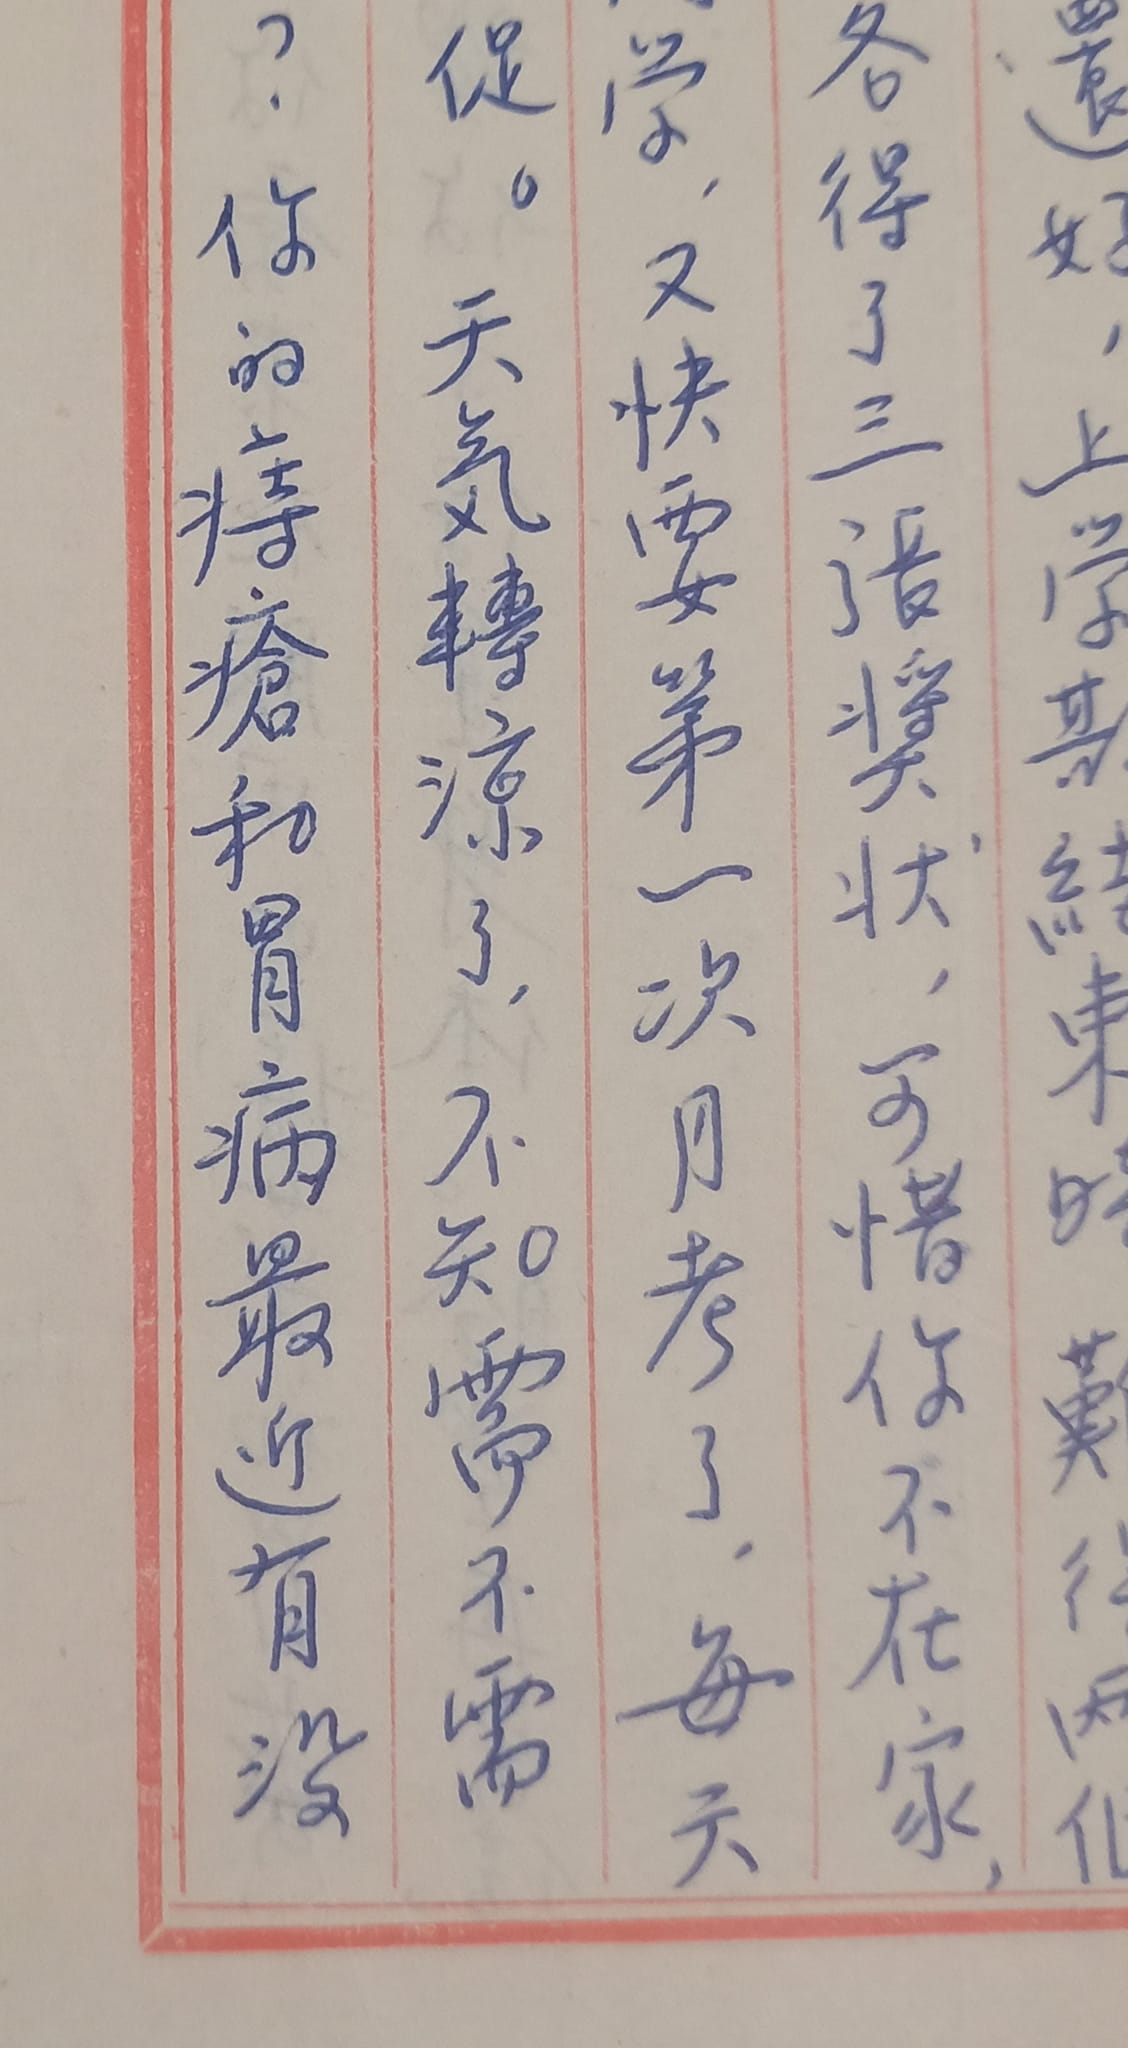 還好，上学期結束時難得兩個
各得了三張奬狀，可惜你不在家，
学，又快要第一次月考了，每天
促。天氣轉涼了，不知需不需
？你的痔瘡和胃病最近有沒